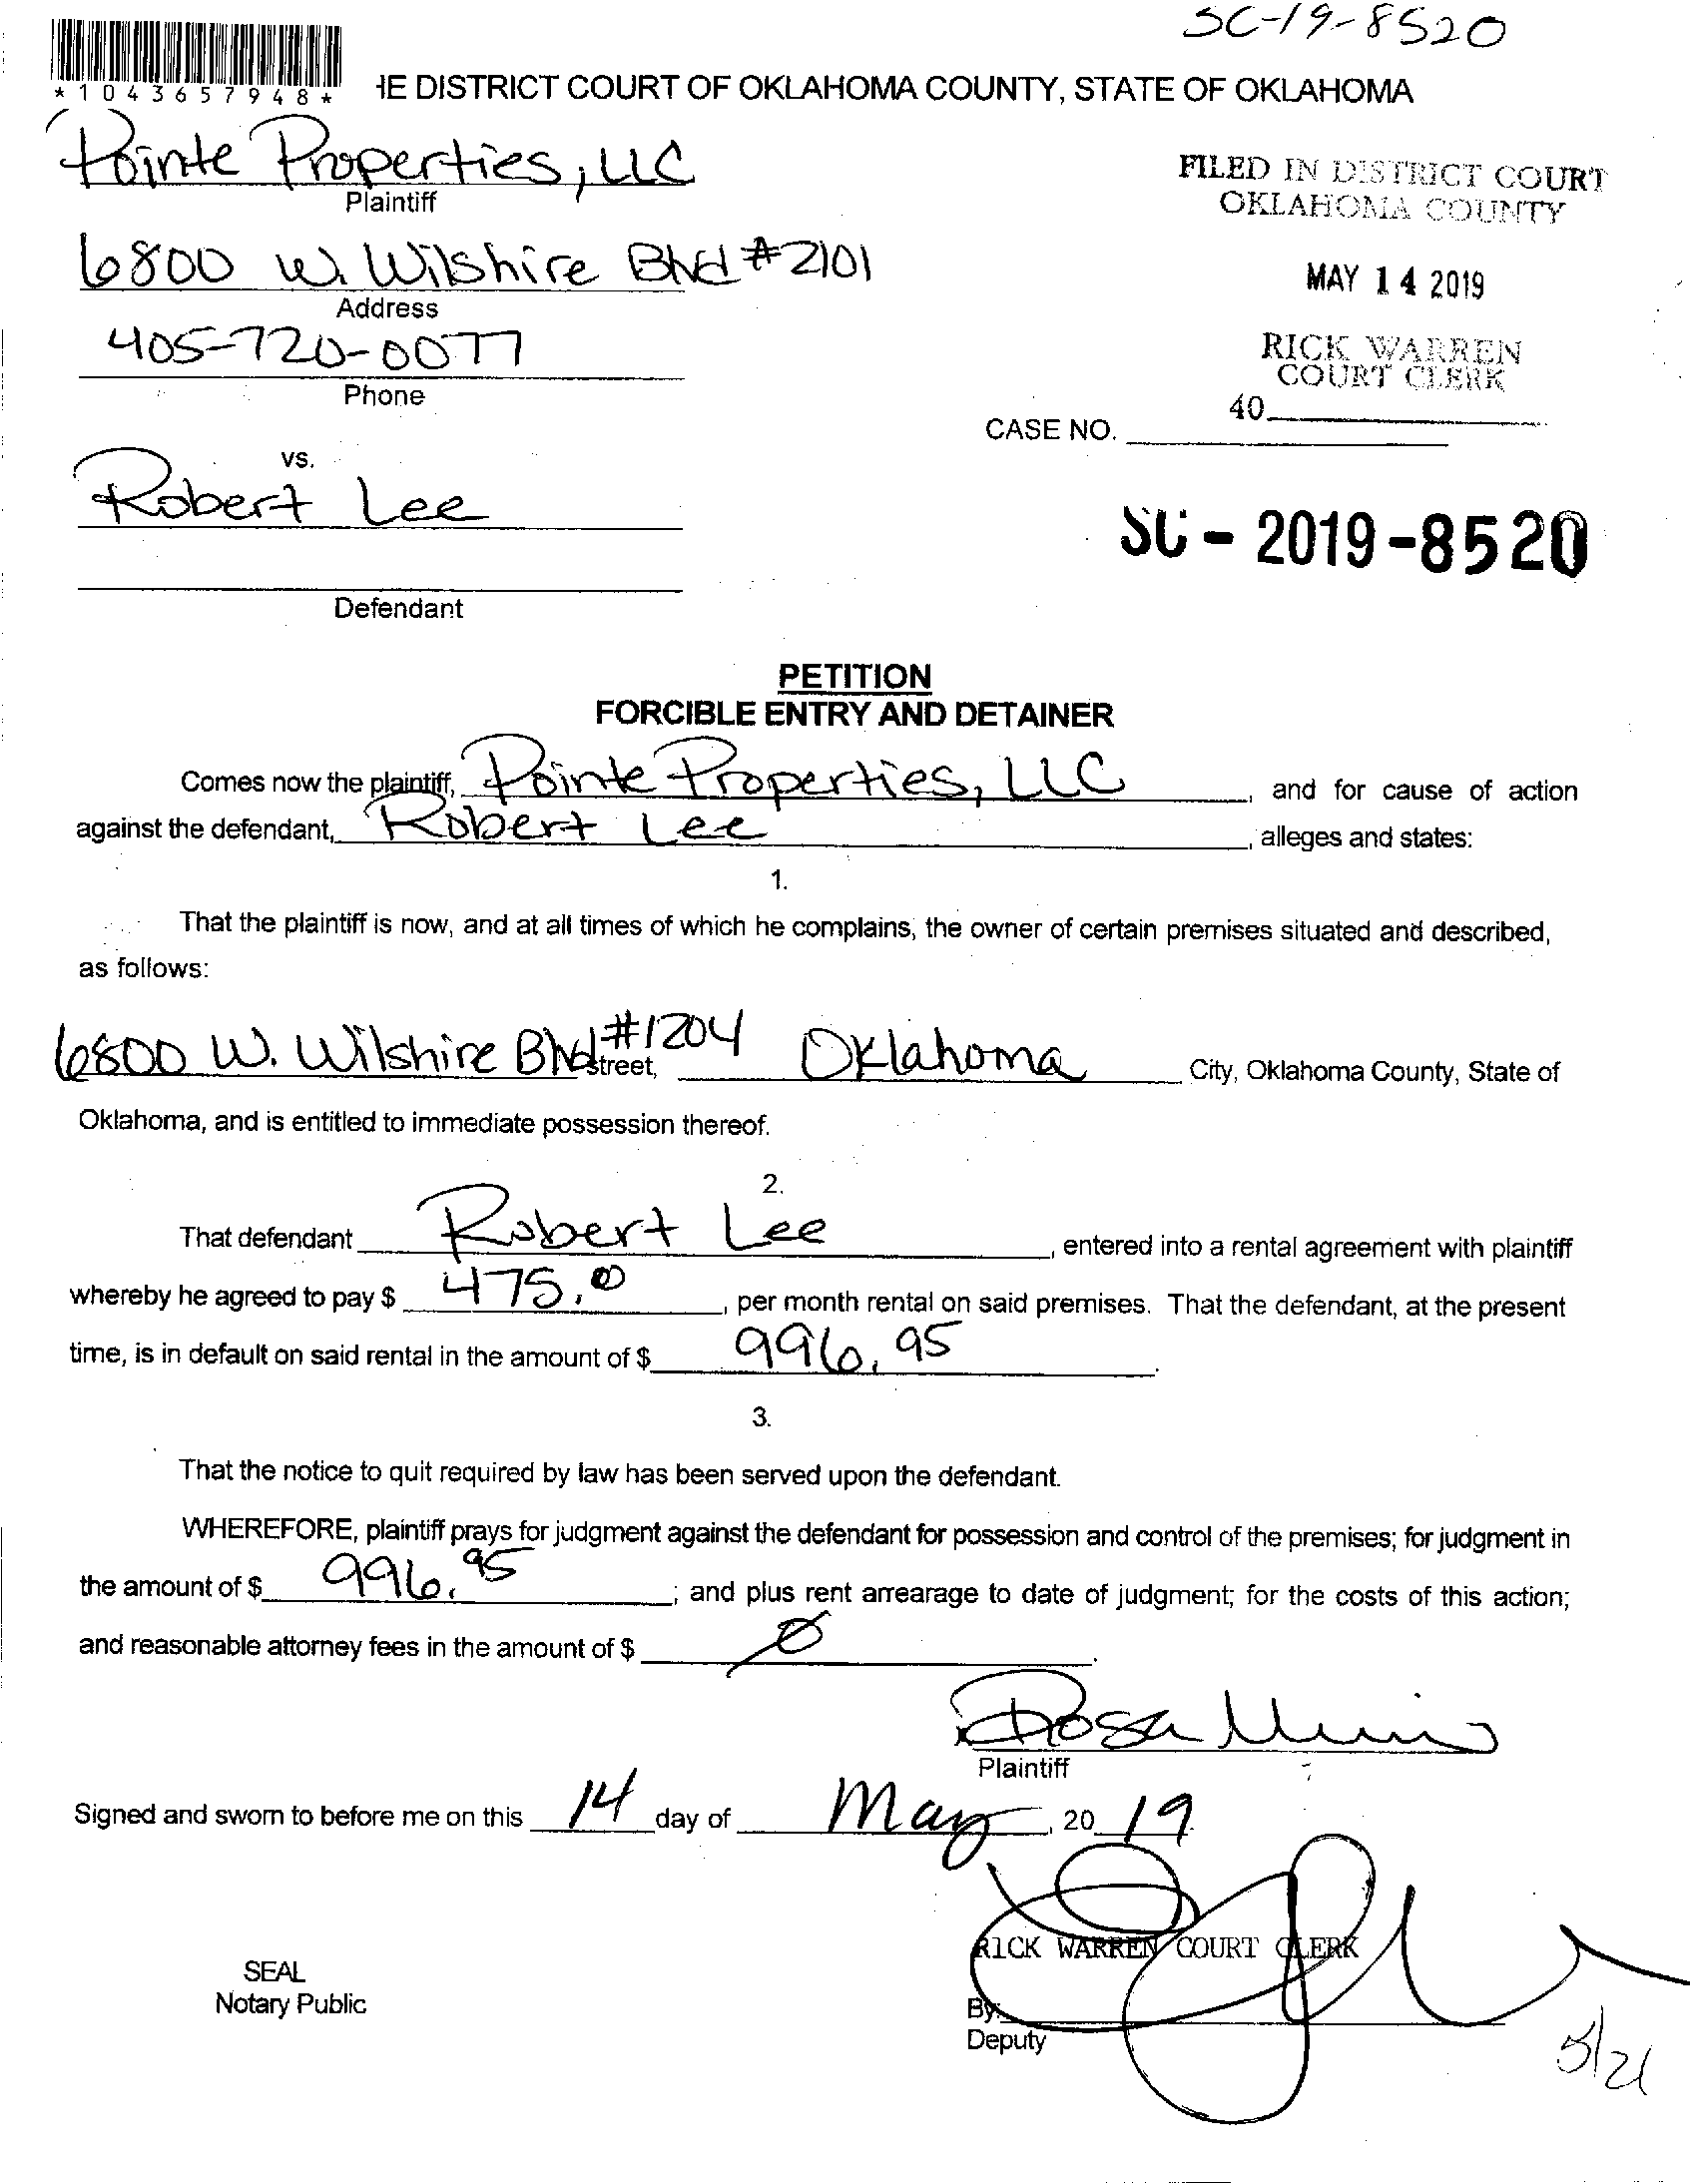 SC-19-8520
*1043657948*
HE DISTRICT COURT OF OKLAHOMA COUNTY, STATE OF OKLAHOMA
Pointe Properties, LLC
Plaintiff
FILED IN DISTRICT COURT
OKLAHOMA COUNTY
6800 W. Wilshire Blvd #2101
Address
MAY 14 2019
405-720-0077
Phone
RICK WARREN
COURT CLERK
40
CASE NO.
vs.
Robert Lee
SC - 2019-8520
Defendant
PETITION
FORCIBLE ENTRY AND DETAINER
Comes now the plaintiff, Pointe Properties, LLC, and for cause of action
against the defendant, Robert Lee, alleges and states:
1.
That the plaintiff is now, and at all times of which he complains, the owner of certain premises situated and described,
as follows:
6800 W. Wilshire Blvd #1204 Street, Oklahoma City, Oklahoma County, State of
Oklahoma, and is entitled to immediate possession thereof.
2.
That defendant Robert Lee, entered into a rental agreement with plaintiff
whereby he agreed to pay $ 475.00, per month rental on said premises. That the defendant, at the present
time, is in default on said rental in the amount of $ 996.95.
3.
That the notice to quit required by law has been served upon the defendant.
WHEREFORE, plaintiff prays for judgment against the defendant for possession and control of the premises; for judgment in
the amount of $ 996.95; and plus rent arrearage to date of judgment; for the costs of this action;
and reasonable attorney fees in the amount of $ Ø.
Rosa
Plaintiff
Signed and sworn to before me on this 14 day of May, 20 19.
RICK WARREN COURT CLERK
SEAL
Notary Public
By:
Deputy
5/21